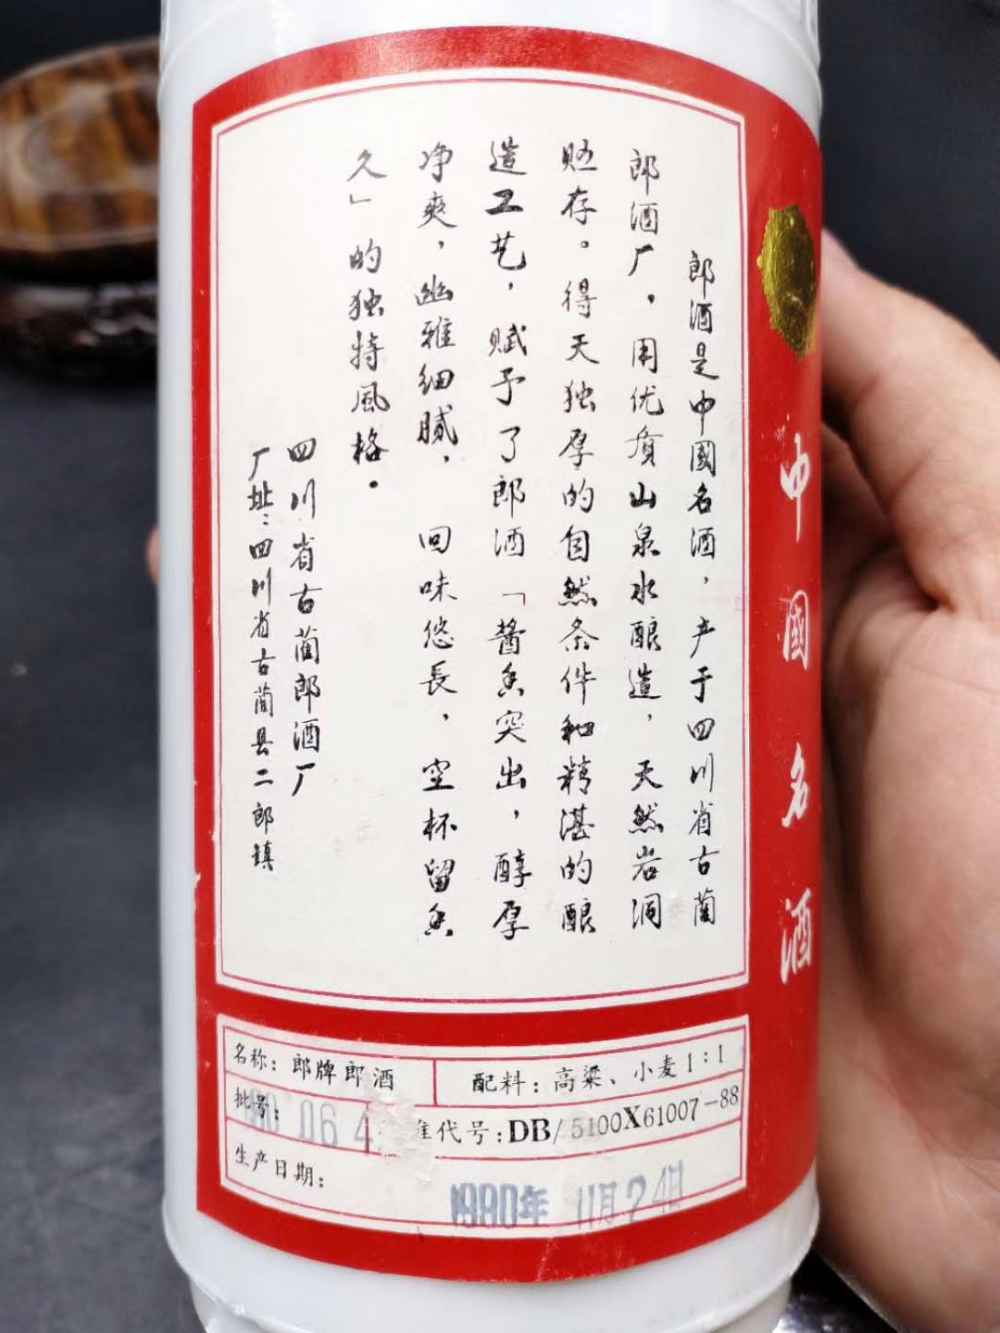 中國名酒
郎酒是中國名酒，产于四川省古蔺
郎酒厂，用优质山泉水酿造，天然岩洞
贮存。得天独厚的自然条件和精湛的酿
造工艺，赋予了郎酒「酱香突出，醇厚
净爽，幽雅细腻，回味悠長，空杯留香
久」的独特風格。
四川省古蔺郎酒厂
厂址：四川省古蔺县二郎镇
名称：郎牌郎酒
配料：高粱、小麦1:1
批号：
06 4
准代号：DB/5100X61007-88
生产日期：
1990年 11月24日